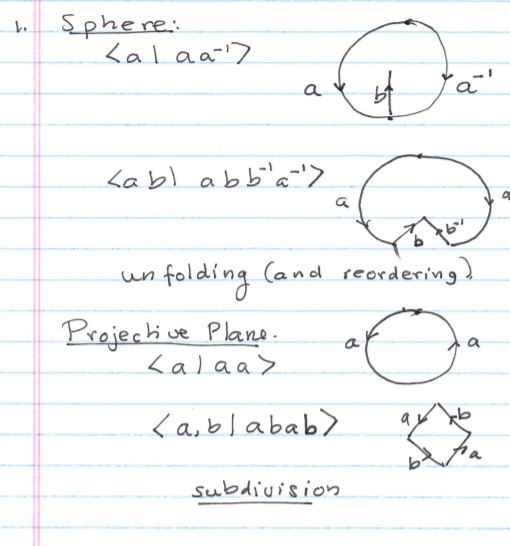 1. Sphere:
<a | aa⁻¹>
a b a⁻¹
<a b | a b b⁻¹ a⁻¹>
a b b⁻¹ a
unfolding (and reordering)
Projective Plane.
a a
<a | aa>
<a, b | abab>
a b
b a
subdivision